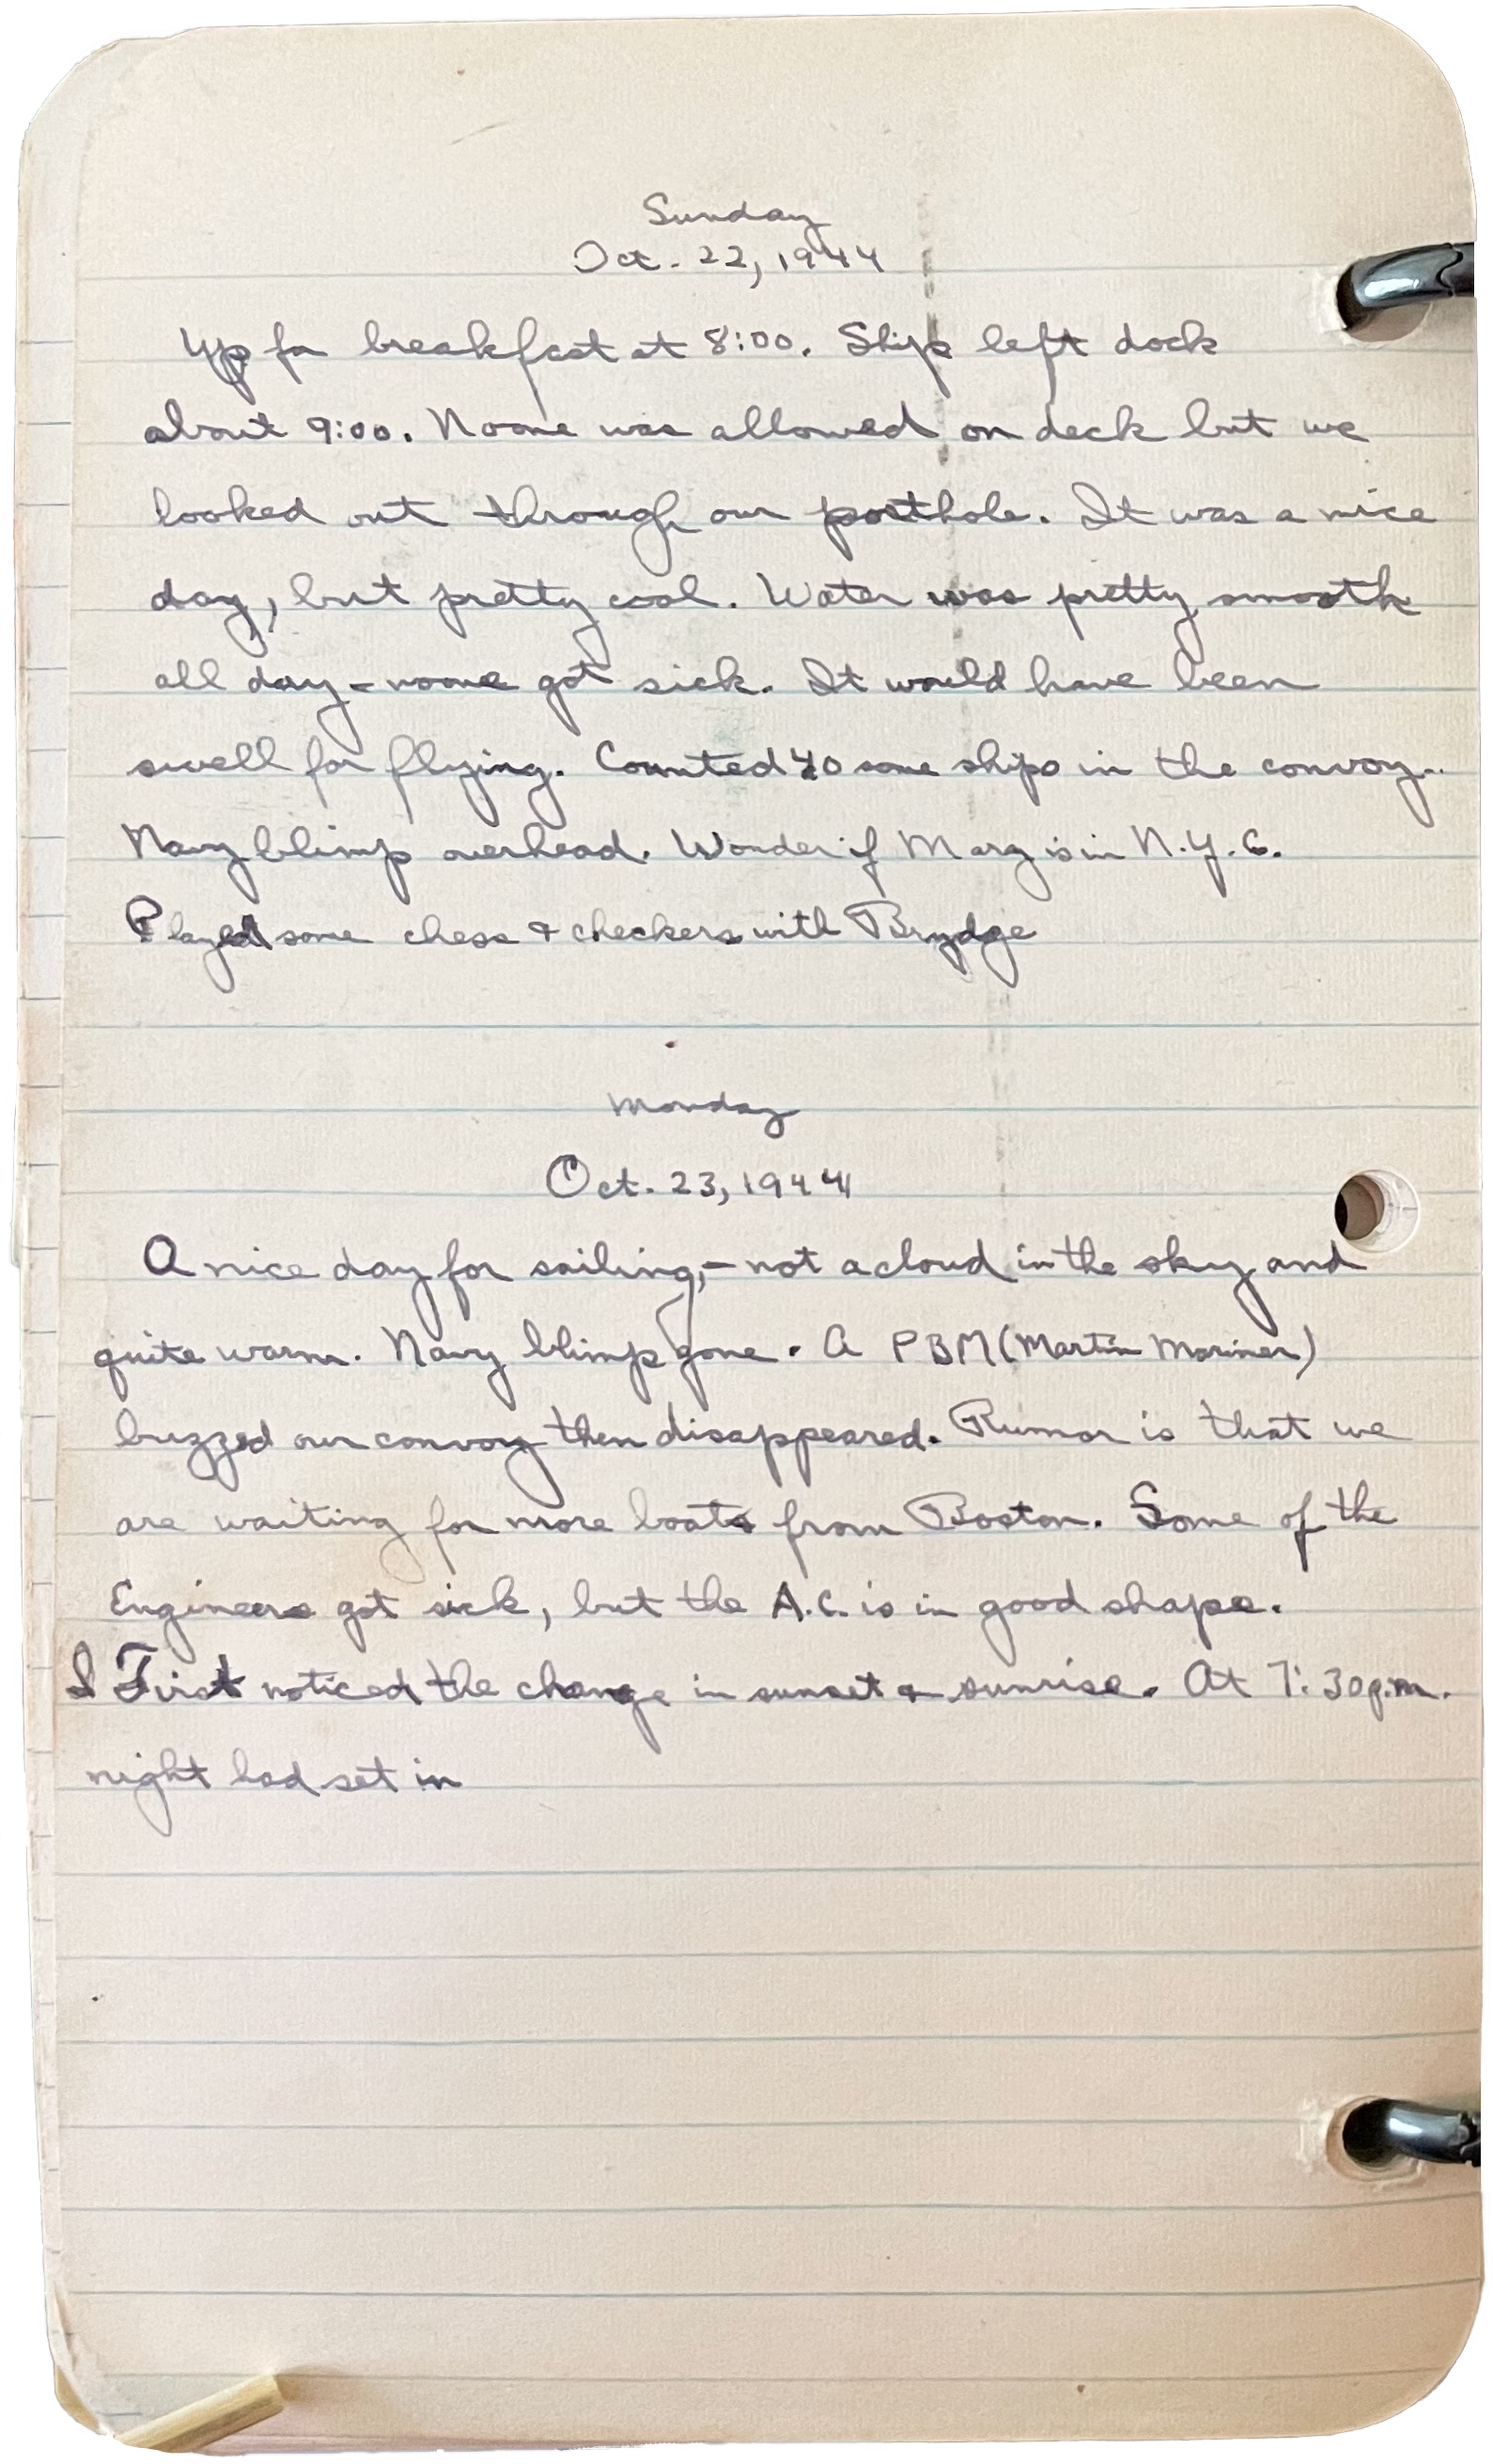 Sunday
Oct. 22, 1944
Up for breakfast at 8:00. Ship left dock
about 9:00. Noone was allowed on deck but we
looked out through our porthole. It was a nice
day, but pretty cool. Water was pretty smooth
all day - noone got sick. It would have been
swell for flying. Counted 40 some ships in the convoy..
Navy blimp overhead. Wonder if Marg is in N.Y.C.
Played some chess & checkers with Brydge
Monday
Oct. 23, 1944
A nice day for sailing,- not a cloud in the sky and
quite warm. Navy blimp gone. A PBM (Martin Mariner)
buzzed our convoy then disappeared. Rumor is that we
are waiting for more boats from Boston. Some of the
Engineers got sick, but the A.C. is in good shape.
I First noticed the change in sunset & sunrise. At 7:30 p.m.
night had set in